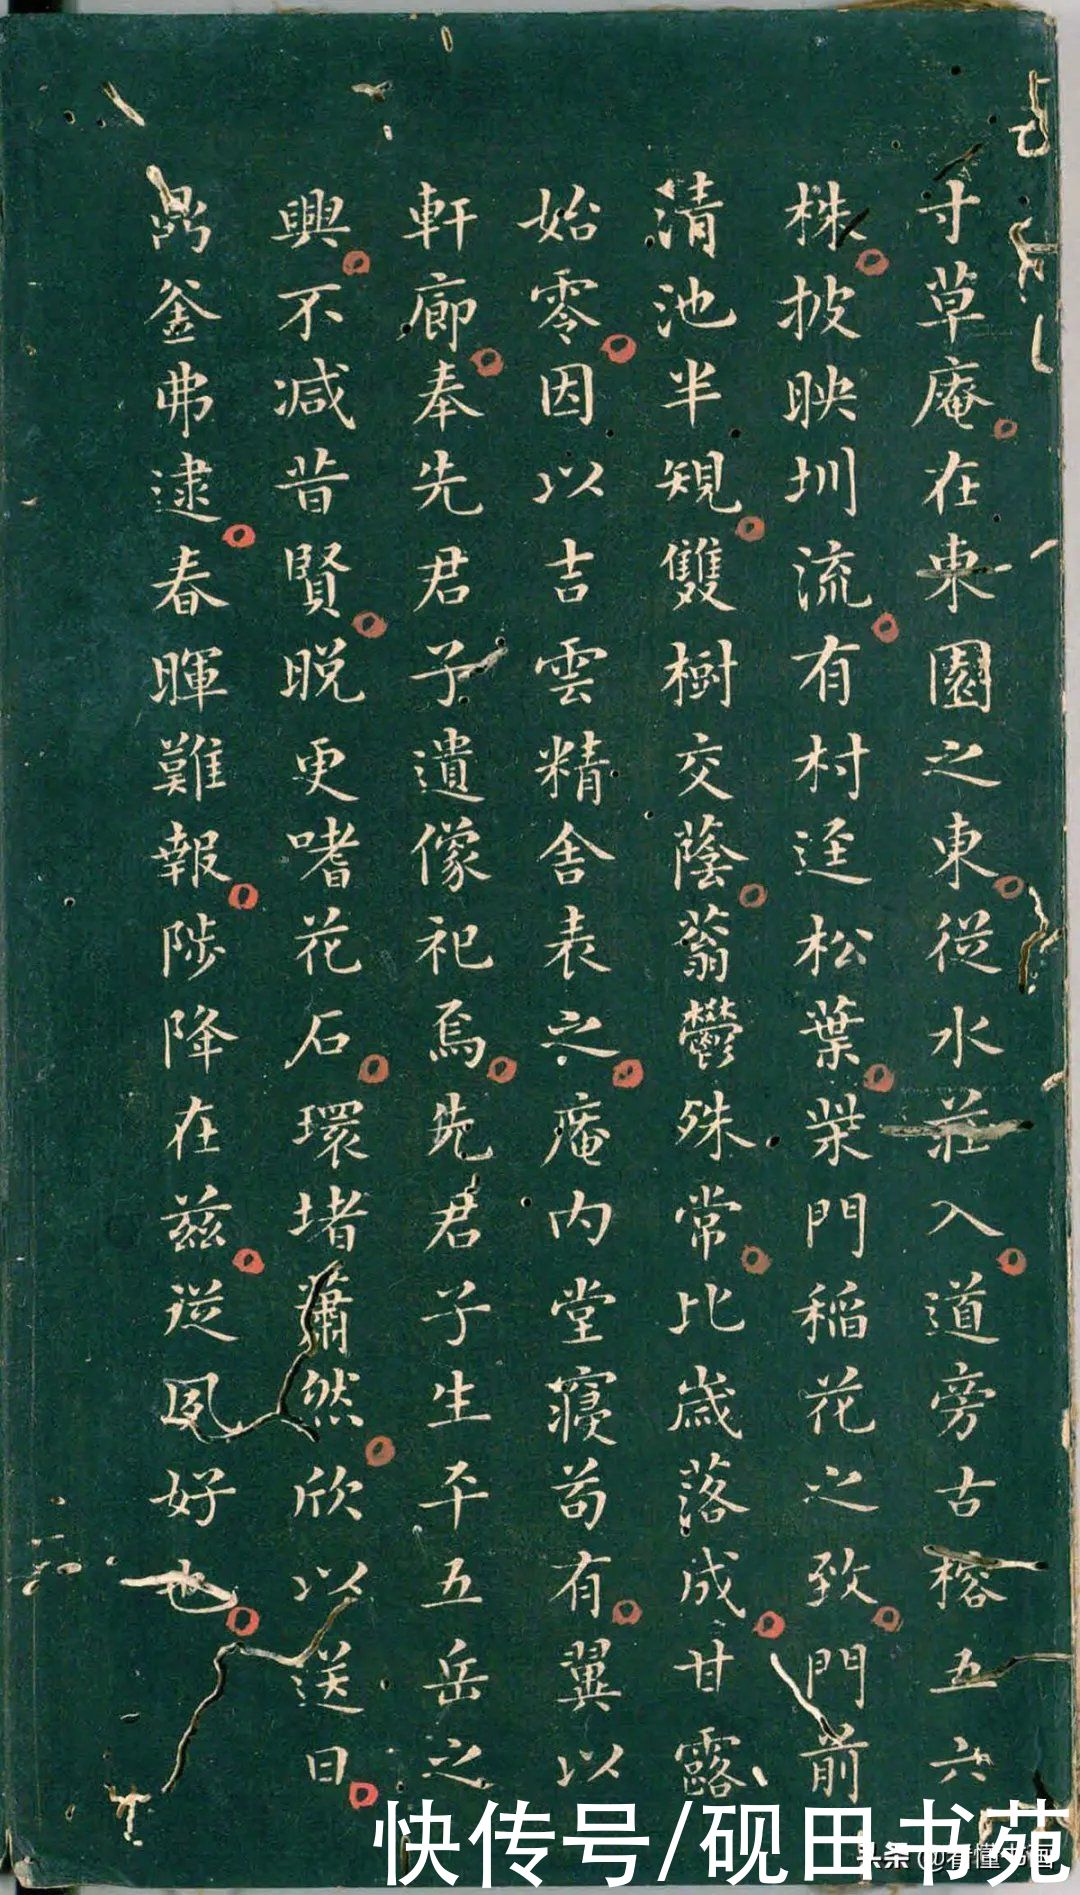 寸草庵在東園之東從水莊入道旁古榕五六
株披映圳流有村迳松葉柴門稲花之致門前
清池半規雙樹交蔭蓊鬱殊常比歳落成甘露
始零因以吉雲精舍表之庵内堂寝苟有翼以
軒廊奉先君子遺像祀焉先君子生平五岳之
興不減昔賢晚更嗜花石環堵蕭然欣以送日
鼎釜弗逮春暉難報陟降在兹從夙好也
快传号/砚田书苑
头条@看懂书画